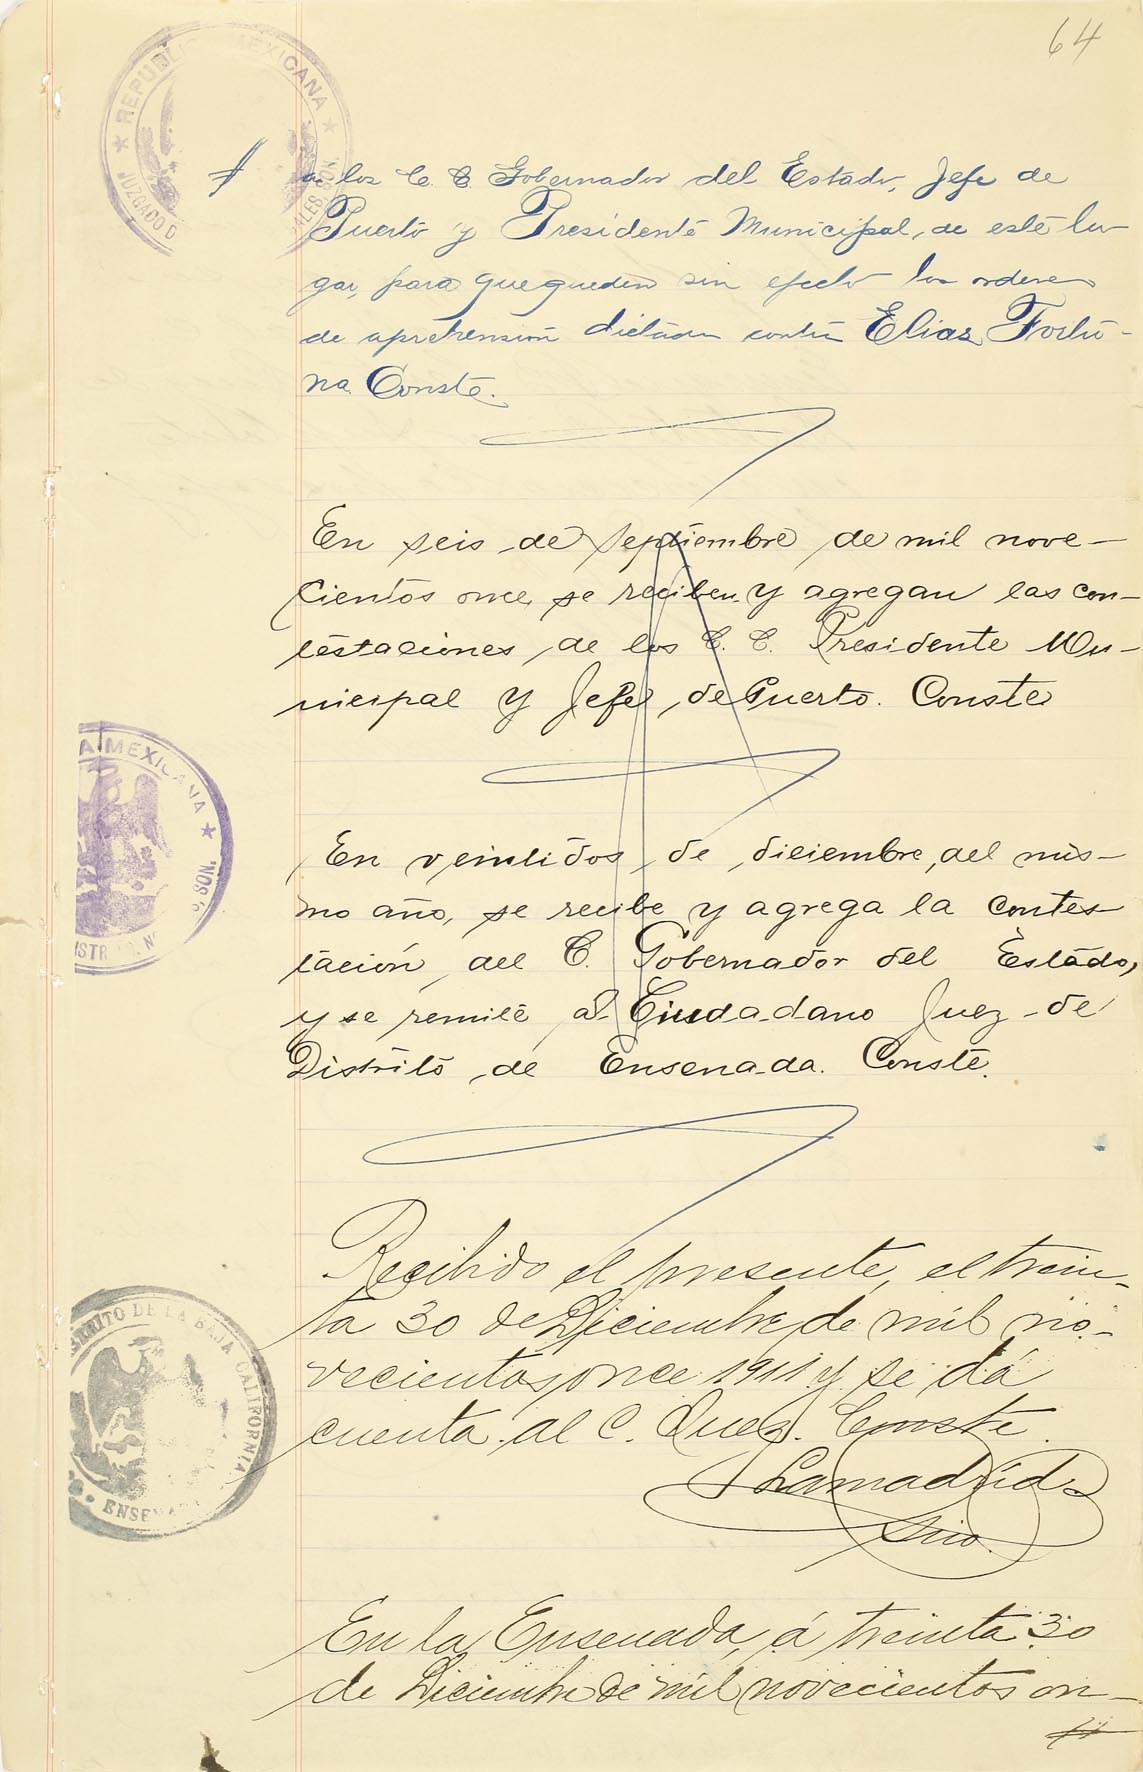 64
REPUBLICA MEXICANA
JUZGADO D
ALES SON
a los C. C. Gobernador del Estado, Jefe de
Puerto y Presidente Municipal, de este lu-
gar, para que queden sin efecto las ordenes
de aprehensión dictadas contra Elias Fortu-
na. Conste.
En seis de septiembre de mil nove-
cientos once, se reciben y agregan las con-
testaciones de los C. C. Presidente Mu-
nicipal y Jefe de Puerto. Conste
A MEXICANA
NOS.
ISTR N
En veintidos de diciembre, del mis-
mo año, se recibe y agrega la contes-
tación del C. Gobernador del Estado,
y se remite al Ciudadano Juez de
Distrito de Ensenada. Conste.
Recibido el presente, el trein-
ta 30 de Diciembre de mil no-
vecientos once 1911 y se dá
cuenta al C. Juez. Conste.
Lamadrid
Srio.
TRITO DE LA BAJA CALIFORNIA
ENSENADA
En la Ensenada, á treinta 30
de Diciembre de mil novecientos on-